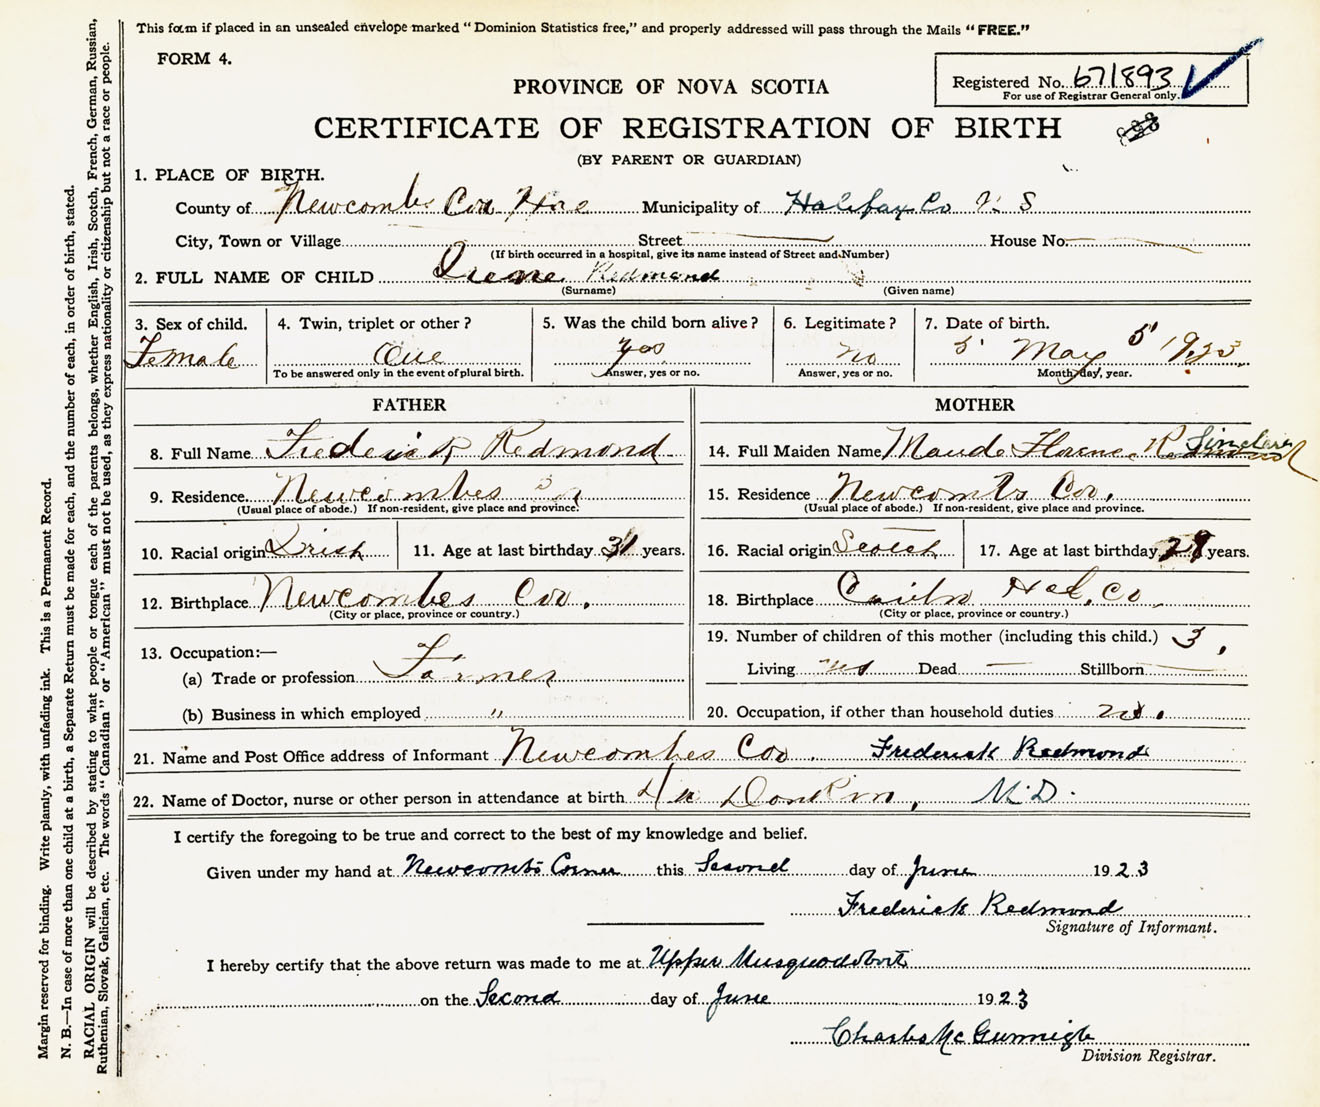 This form if placed in an unsealed envelope marked "Dominion Statistics free," and properly addressed will pass through the Mails "FREE."
FORM 4.
Registered No. 671893
For use of Registrar General only.
PROVINCE OF NOVA SCOTIA
CERTIFICATE OF REGISTRATION OF BIRTH
(BY PARENT OR GUARDIAN)
1. PLACE OF BIRTH.
County of Newcombs Cor Municipality of Halifax Co N. S
City, Town or Village Street House No.
(If birth occurred in a hospital, give its name instead of Street and Number)
2. FULL NAME OF CHILD Irene Redmond
(Surname) (Given name)
3. Sex of child. 4. Twin, triplet or other? 5. Was the child born alive? 6. Legitimate? 7. Date of birth.
Female One yes no 5 May 5 1923
To be answered only in the event of plural birth. Answer, yes or no. Answer, yes or no. Month, day, year.
FATHER
8. Full Name Frederick Redmond
9. Residence Newcombes Cor
(Usual place of abode.) If non-resident, give place and province.
10. Racial origin Irish 11. Age at last birthday 31 years.
12. Birthplace Newcombes Cor.
(City or place, province or country.)
13. Occupation:—
(a) Trade or profession Farmer
(b) Business in which employed "
MOTHER
14. Full Maiden Name Maude Florence R Sinclere
15. Residence Newcombs Cor.
(Usual place of abode.) If non-resident, give place and province.
16. Racial origin Scotch 17. Age at last birthday 29 years.
18. Birthplace Hal, Co
(City or place, province or country.)
19. Number of children of this mother (including this child.) 3.
Living yes Dead — Stillborn
20. Occupation, if other than household duties no.
21. Name and Post Office address of Informant Newcombes Cor. Frederick Redmond
22. Name of Doctor, nurse or other person in attendance at birth Donkin, M.D.
I certify the foregoing to be true and correct to the best of my knowledge and belief.
Given under my hand at Newcombs Corner this Second day of June 1923
Frederick Redmond
Signature of Informant.
I hereby certify that the above return was made to me at Upper Musquodoboit
on the Second day of June 1923
Charles McGunnigle
Division Registrar.
Margin reserved for binding. Write plainly, with unfading ink. This is a Permanent Record.
N. B.—In case of more than one child at a birth, a Separate Return must be made for each, and the number of each, in order of birth, stated.
RACIAL ORIGIN will be described by stating to what people or tongue each of the parents belongs, whether English, Irish, Scotch, French, German, Russian,
Ruthenian, Slovak, Galician, etc. The words "Canadian" or "American" must not be used, as they express nationality or citizenship but not a race or people.